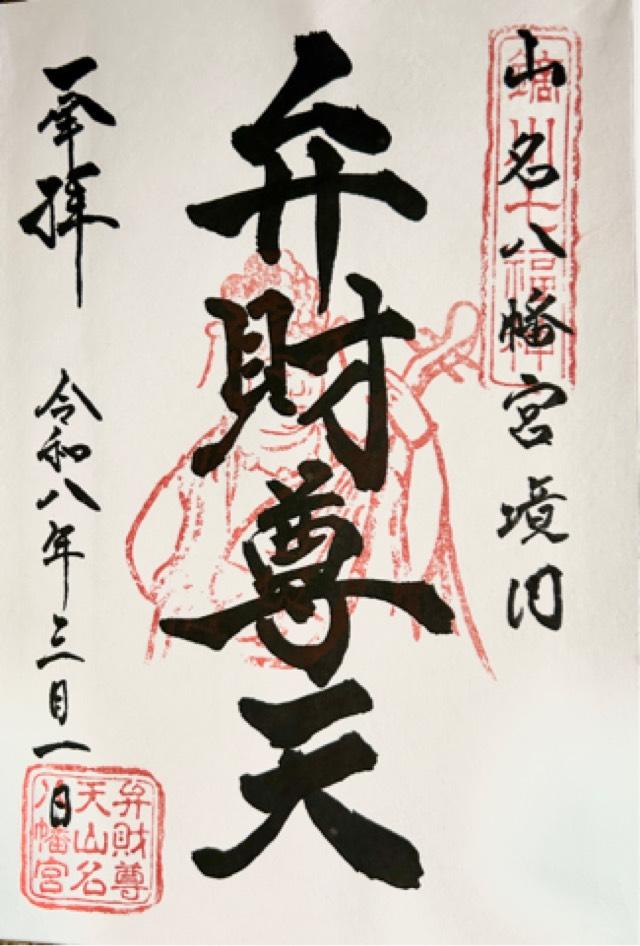 山名八幡宮境内
鏑川七福神
弁財尊天
奉拝
令和八年三月一日
弁財尊
天山名
八幡宮